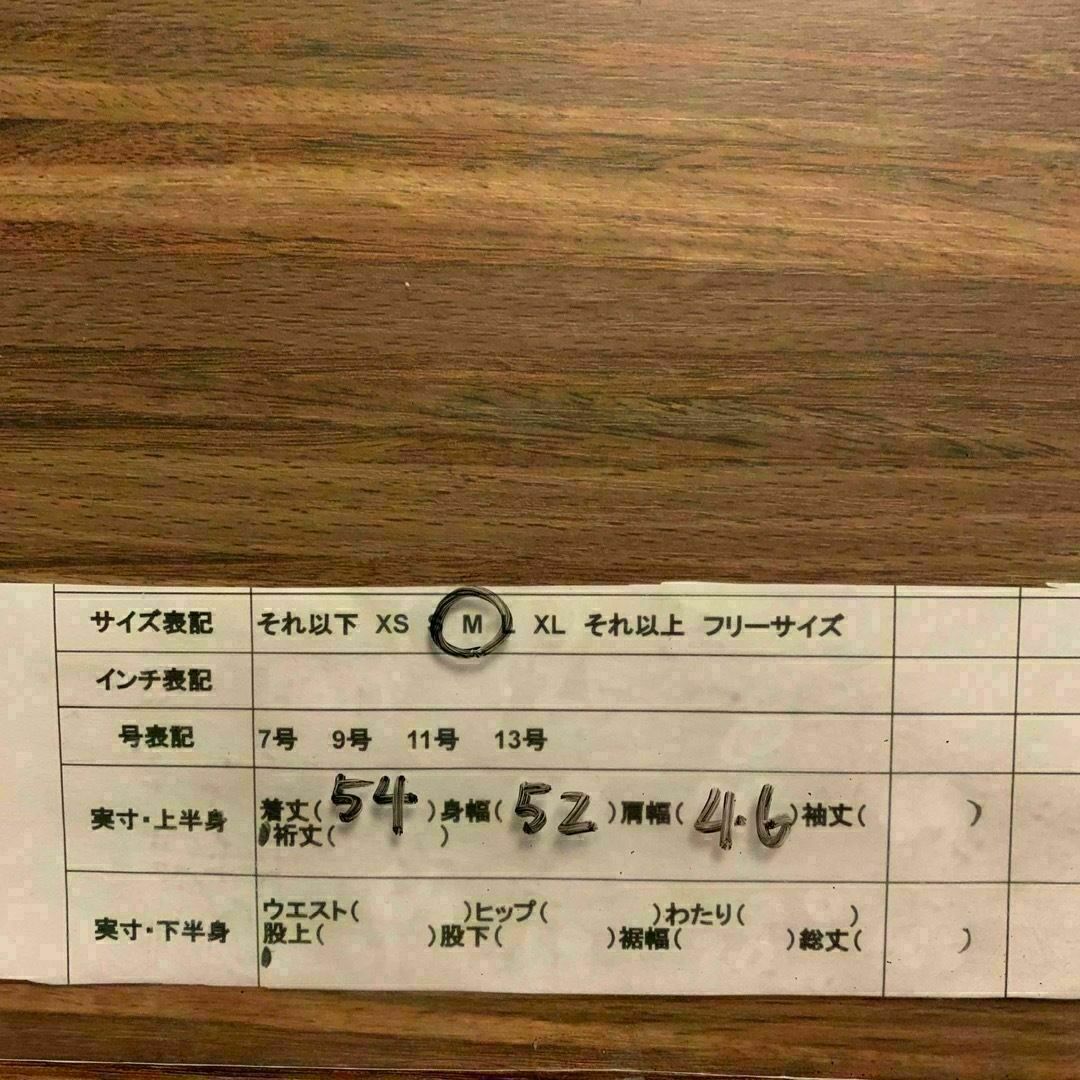 サイズ表記 それ以下 XS S M L XL それ以上 フリーサイズ
インチ表記
号表記 7号 9号 11号 13号
実寸・上半身 着丈( 54 )身幅( 52 )肩幅( 46 )袖丈( )
裄丈( )
実寸・下半身 ウエスト( )ヒップ( )わたり( )
股上( )股下( )裾幅( )総丈( )